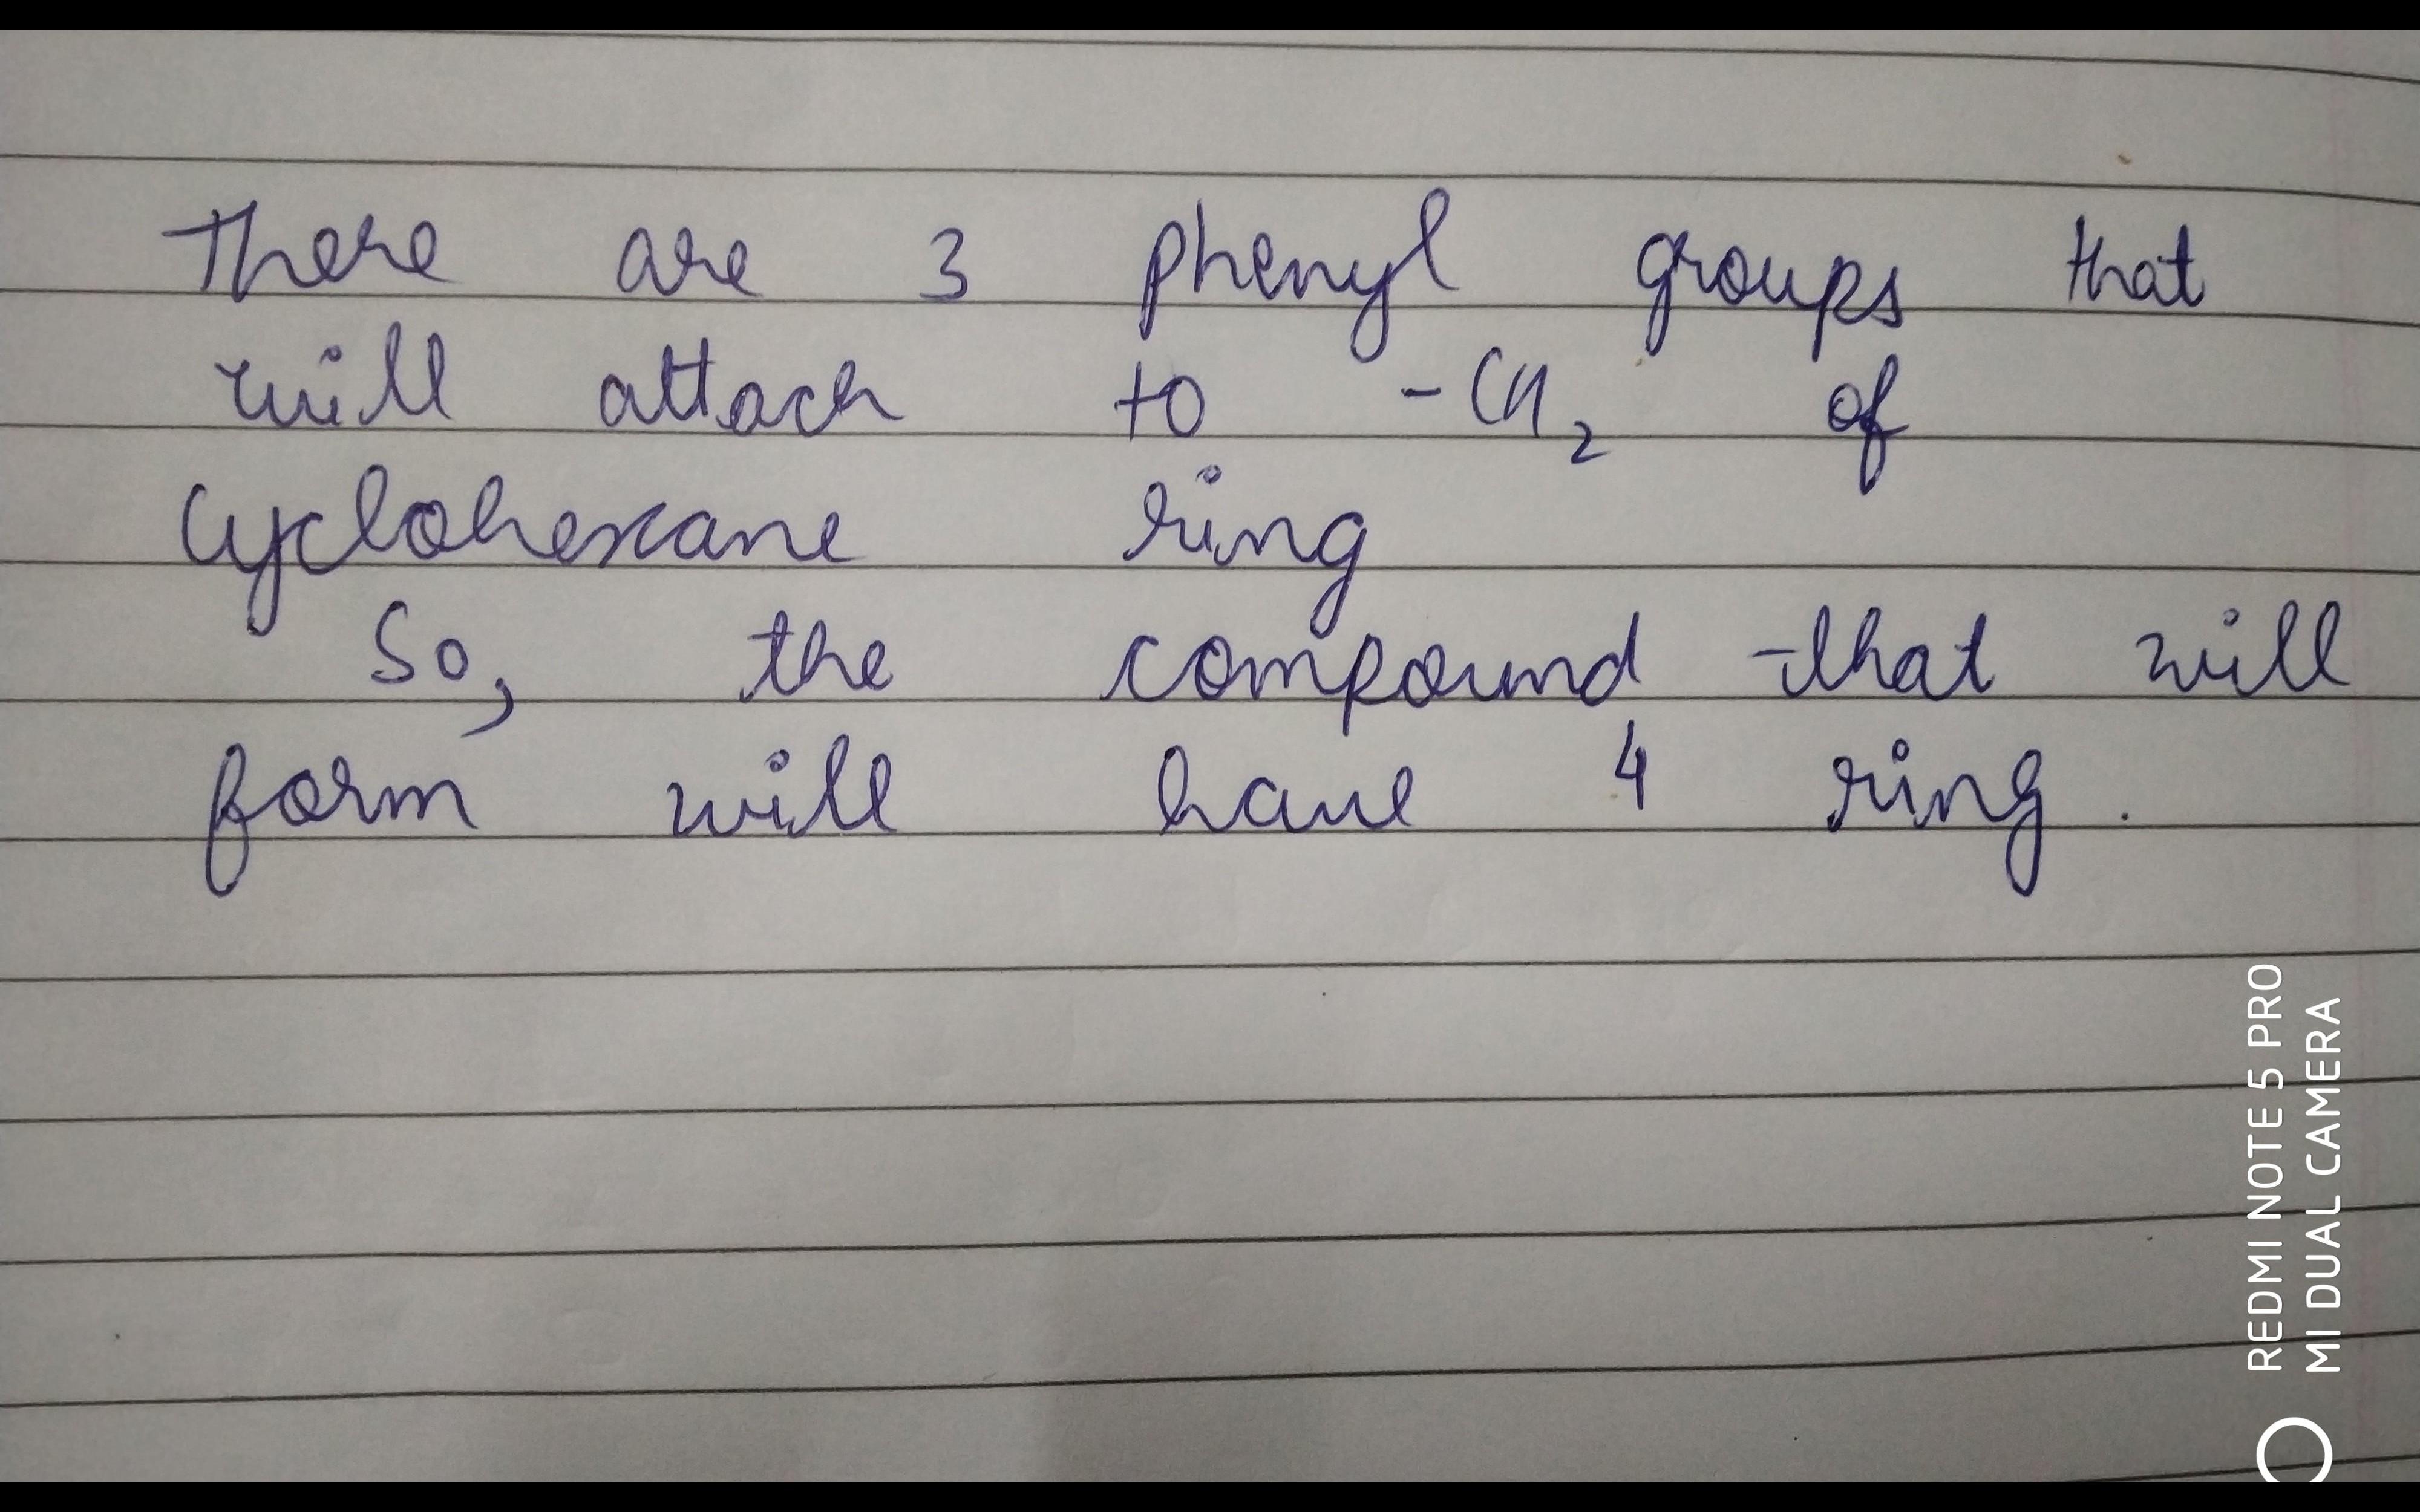 There are 3 phenyl groups that
will attach to -CH₂ of
Cyclohexane ring
So, the compound that will
form will have 4 ring.
REDMI NOTE 5 PRO
MI DUAL CAMERA